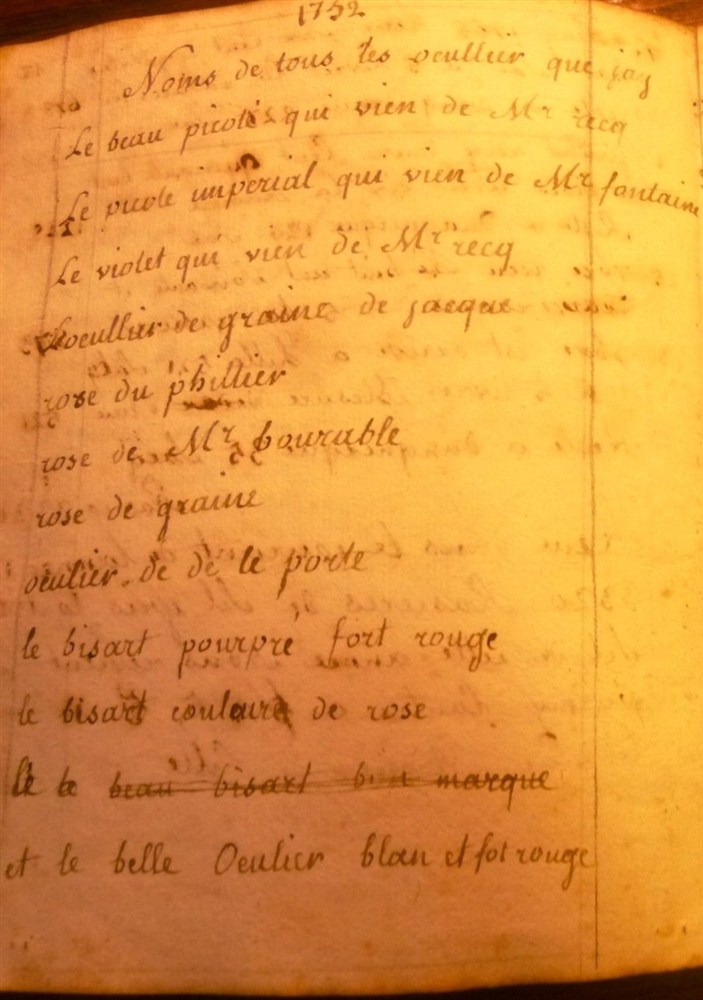 1752
Noms de tous les ocullier que jay
Le beau picoté qui vien de Mr recq
Le picote imperial qui vien de Mr fontaine
Le violet qui vien de Mr recq
Locullier de graine de jacque
rose du phillier
rose de Mr bourable
rose de graine
oculier de de le porte
le bisart pourpré fort rouge
le bisart couleure de rose
le le beau bisart bien marque
et le belle Oculier blan et fot rouge